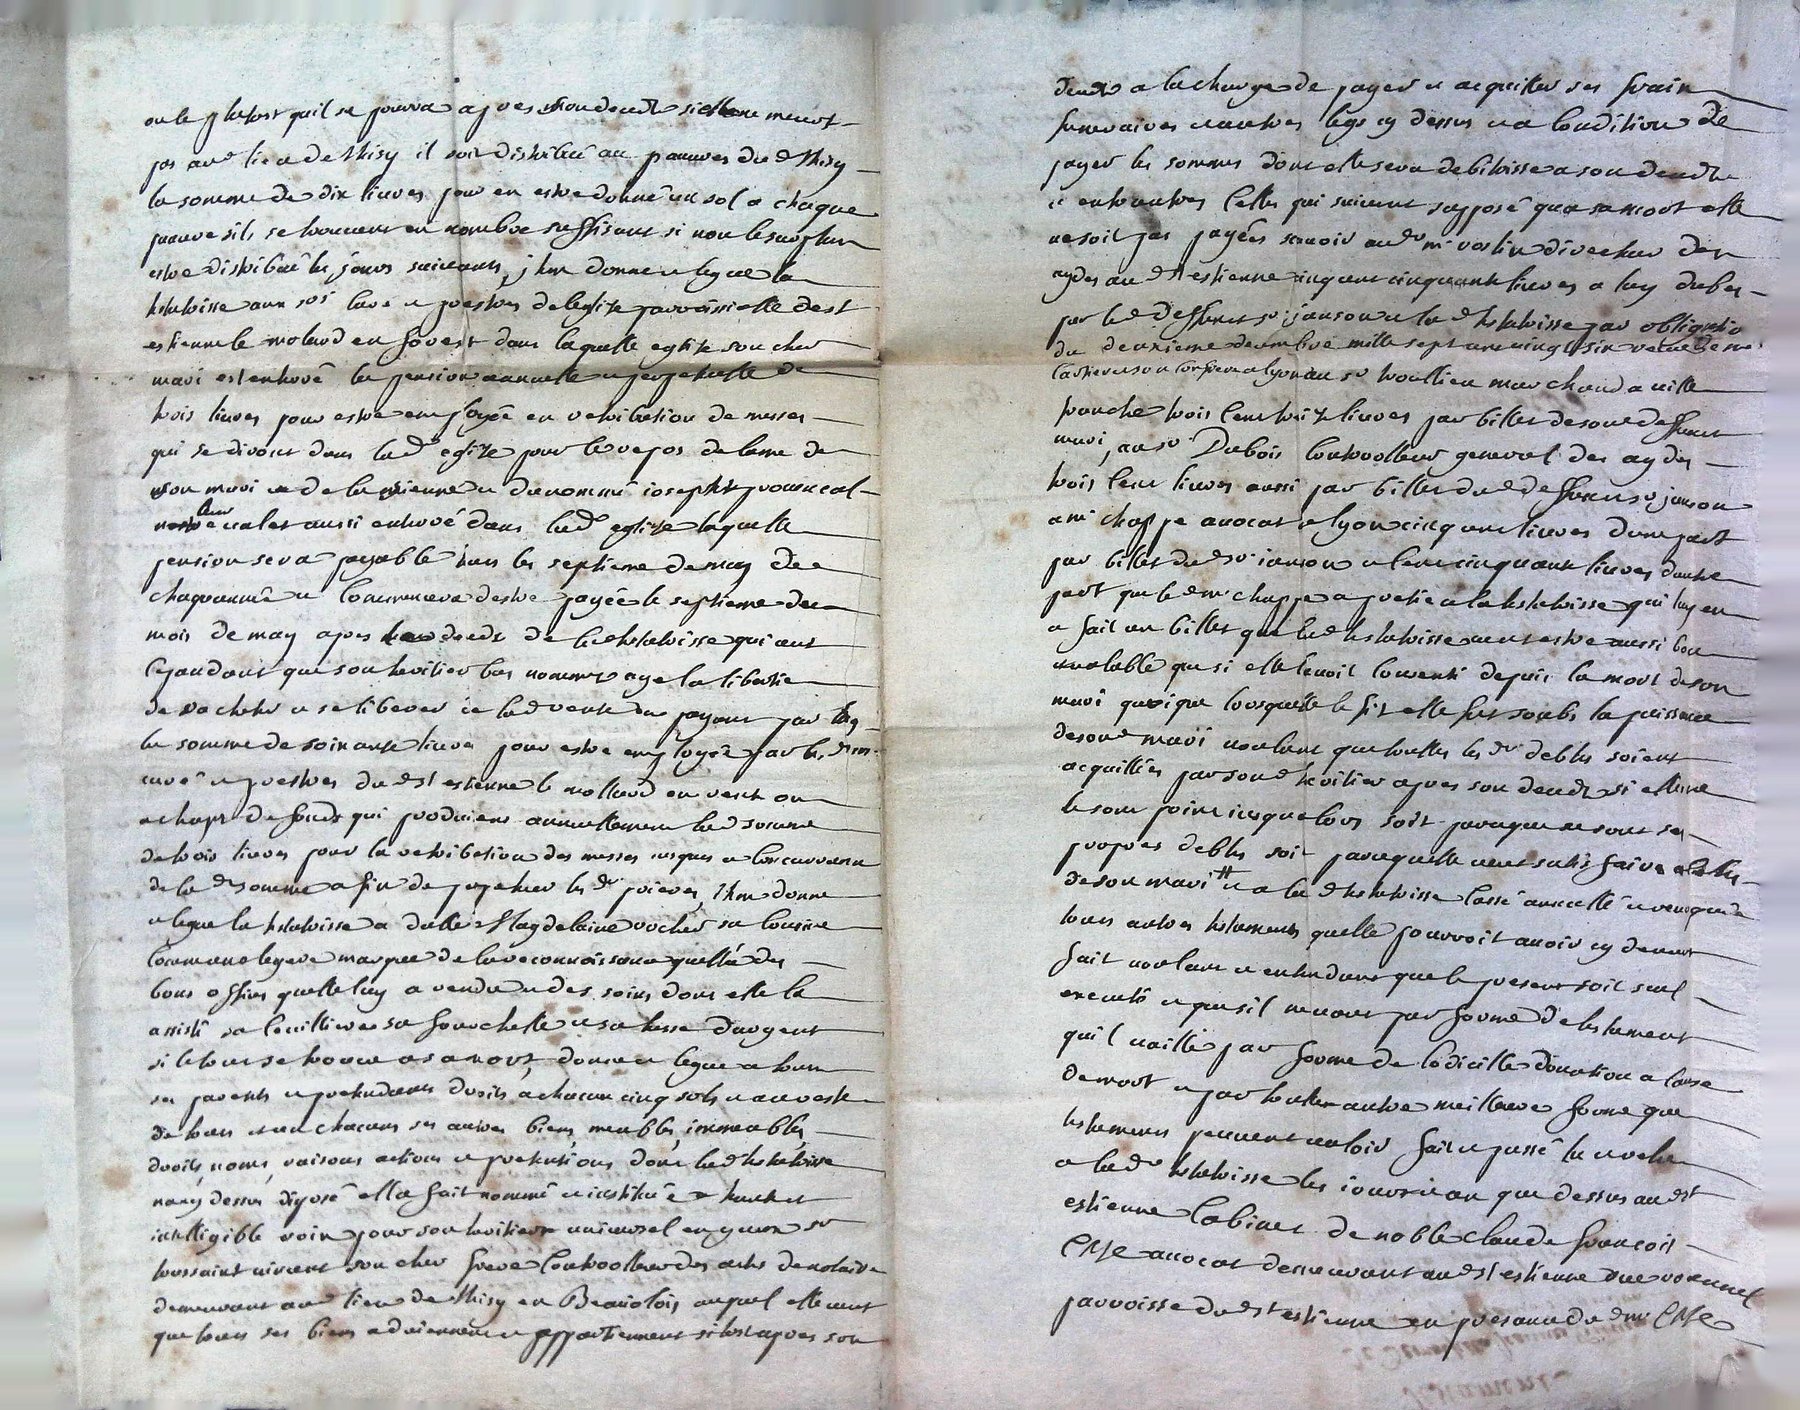 ou le plutost quil se pourra apres son decedz si elle ne meurt
pas aud lieu de Thisy il soit distribué au pauvres dud Thisy
la somme de dix livres pour en estre donné un sol a chaque
pauvre sils se trouvent en nombre suffisant si non le surplus
estre distribué les jours suivants, jtem donne et legue la
testatrisse aux srs curé et prestres de leglize parroissielle de st
estienne le molard en forest dans laquelle eglize son cher
mari est enterré la pension annuelle et perpetuelle de
trois livres pour estre employée en retribution de messes
qui se diront dans lad eglize pour le repos de lame de
son mari et de la sienne et du nommé joseph provencal
leur valet aussi enterré dans lad eglize laquelle
pension sera payable tous les septieme de may de
chaque année et commencera destre payée le septieme du
mois de may apres le decedz de lad testatrisse qui veut
cependant que son heritier bas nommé aye la liberté
de racheter et se liberer de lad rente en payant par luy
la somme de soixante livres pour estre employée par lesd srs
curé et prestres dud st estienne le mollard en rente ou
achapt de fonds qui produisent annuellement lad somme
de trois livres pour la retribution des messes jusques a concurrance
de lad somme afin de perpetuer lesd prieres, jtem donne
et legue la testatrisse a delle Magdelaine rocher sa cousine
comme une legere marque de la reconnoissance quelle a des
bons offices quelle luy a rendu et des soins dont elle la
assisté sa cuilliere sa fourchette et sa tasse dargent
si le tout se trouve a sa mort, donne et legue a tous
ses parents et pretendants droits a chacun cinq sols et au reste
de tous et un chacuns ses autres biens, meubles, immeubles,
droits, noms, raisons actions et pretentions dont lad testatrisse
na cy dessus disposé elle a fait nommé et institué a haute et
intelligible voix pour son heritier universel en general sr
toussaint vincent son cher frere controolleur des actes de notaire
demeurant aud lieu de Thisy en Beaujolois auquel elle veut
que tous ses biens adviennent et appartiennent sitost apres son
decedz a la charge de payer et acquitter ses frais
funeraires et autres legs cy dessus et a condition de
payer les sommes dont elle sera debitrisse a son decedz
et entre autres celles qui suivent supposé qua sa mort elle
ne soit pas payées scavoir aud mr vostin directeur des
aydes aud st estienne cinq cent cinquante livres a luy dubes
par led deffunt sr janson et lad testatrisse par obligation
du deuxieme decembre mille sept cent vingt six receue de me
cartier et son confrere a lyon au sr troullieu marchand a ville
franche trois cent treize livres par billet de son deffunt
mari, au sr Dubois controolleur general des aydes
trois cent livres aussi par billet dud deffunt sr janson
a mr chappe avocat a lyon cinq cent livres dune part
par billet dud sr janson et cent cinquante livres dautre
part que led mr chappe a preté a la testatrisse qui luy en
a fait un billet que lad testatrisse veut estre aussi bon
et vallable que si elle lavoit consenti depuis la mort de son
mari quoique lorsquelle le fit elle fut soubs la puissance
de son mari voulant que toutes lesd debtes soient
acquittées par son d heritier apres son decedz si elle ne
le sont point jusque lors soit parceque ce sont ses
propres debtes soit parcequelle veut satisfaire a celles
de son mari et a lad testatrisse cassé annullé et revoqué
tous autres testaments quelle pourroit avoir cy devant
fait voulant et entendant que le present soit seul
executé et que sil ne vaut par forme de testament
quil vaille par forme de codicille donation a cause
de mort et par toute autre meilleure forme que
testament peuvent valoir fait et passé leu et relu
a lad testatrisse les jour et an que dessus aud st
estienne cabinet de noble claude francois
avocat demeurant aud st estienne rue
parroisse dud st estienne en presence dud mr